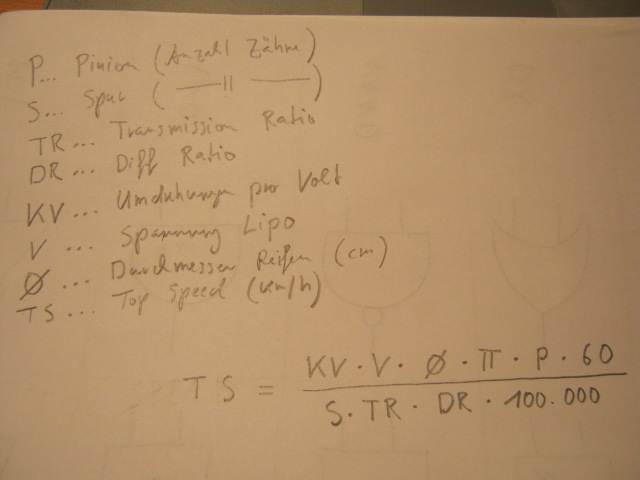 P... Pinion (Anzahl Zähne)
S... Spur ( —— 〃 —— )
TR... Transmission Ratio
DR... Diff Ratio
KV... Umdrehungen pro Volt
V ... Spannung Lipo
Ø ... Durchmesser Reifen (cm)
TS ... Top Speed (km/h)
TS = KV · V · Ø · π · P · 60
S · TR · DR · 100.000